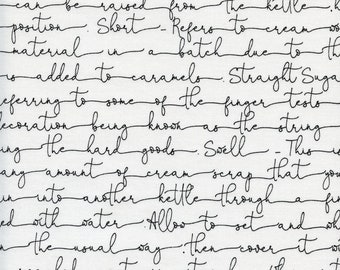 can be raised from the kettle.
position. Short - Refers to cream wo
material in a batch due to th
is added to caramels. Straight Suga
eferring to some of the finger tests
ecoration being known as the string
ng the hard goods. Swell - This is
any amount of cream scrap that you
in into another kettle through a fin
ed with water. Allow to set and wh
n the usual way. then cover it w